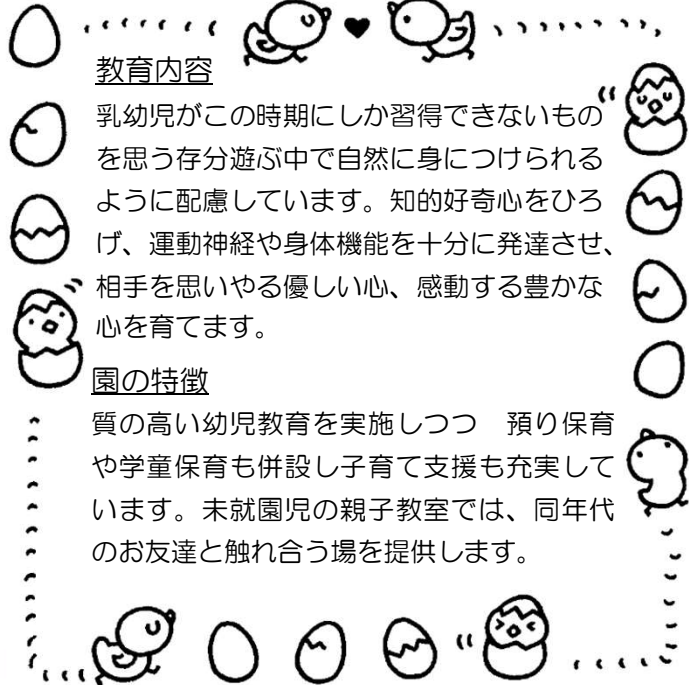 教育内容
乳幼児がこの時期にしか習得できないもの
を思う存分遊ぶ中で自然に身につけられる
ように配慮しています。知的好奇心をひろ
げ、運動神経や身体機能を十分に発達させ、
相手を思いやる優しい心、感動する豊かな
心を育てます。
園の特徴
質の高い幼児教育を実施しつつ　預り保育
や学童保育も併設し子育て支援も充実して
います。未就園児の親子教室では、同年代
のお友達と触れ合う場を提供します。